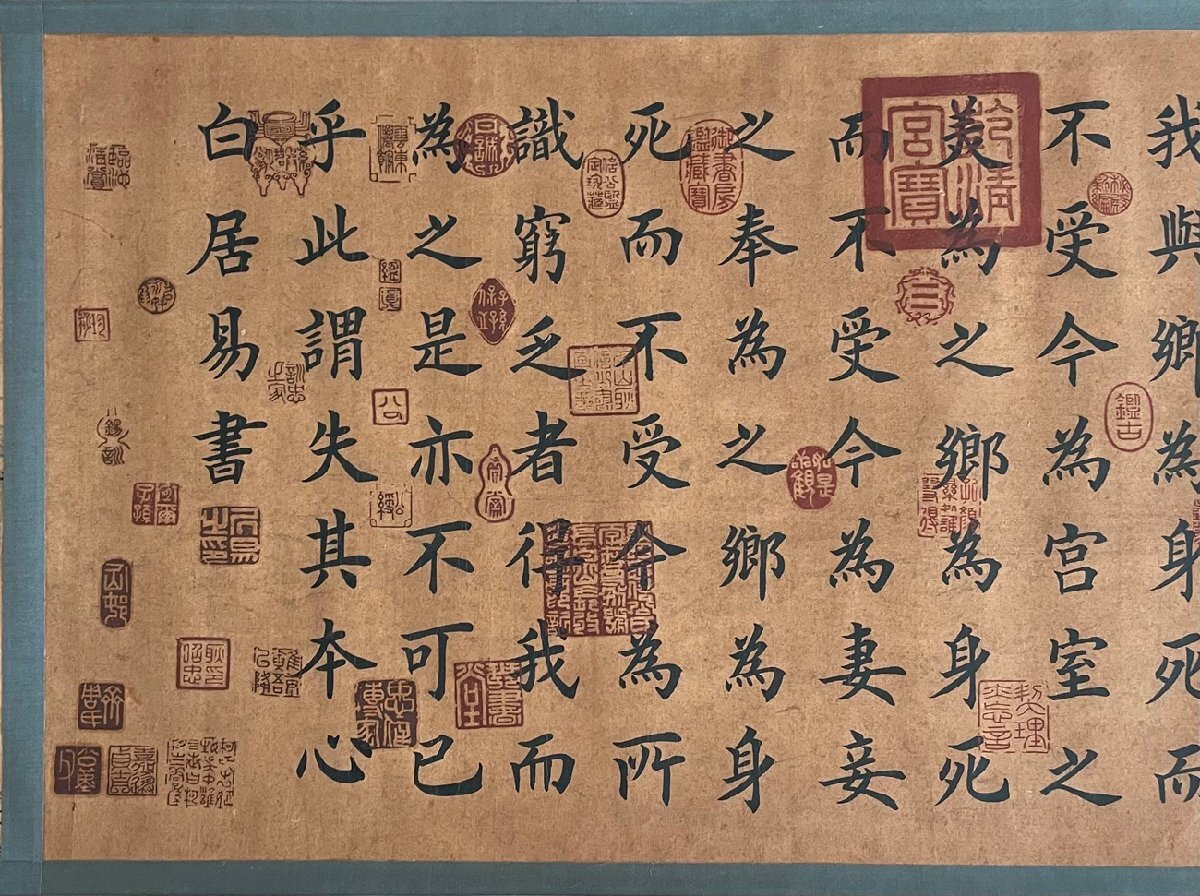 我與鄉為身死而
不受今為宮室之
美為之鄉為身死
而不受今為妻妾
之奉為之鄉為身
死而不受今為所
識窮乏者得我而
為之是亦不可已
乎此謂失其本心
白居易書
乾清宮寶
鑑古
御書房鑑藏寶
契理忘言
訓忠之家
公